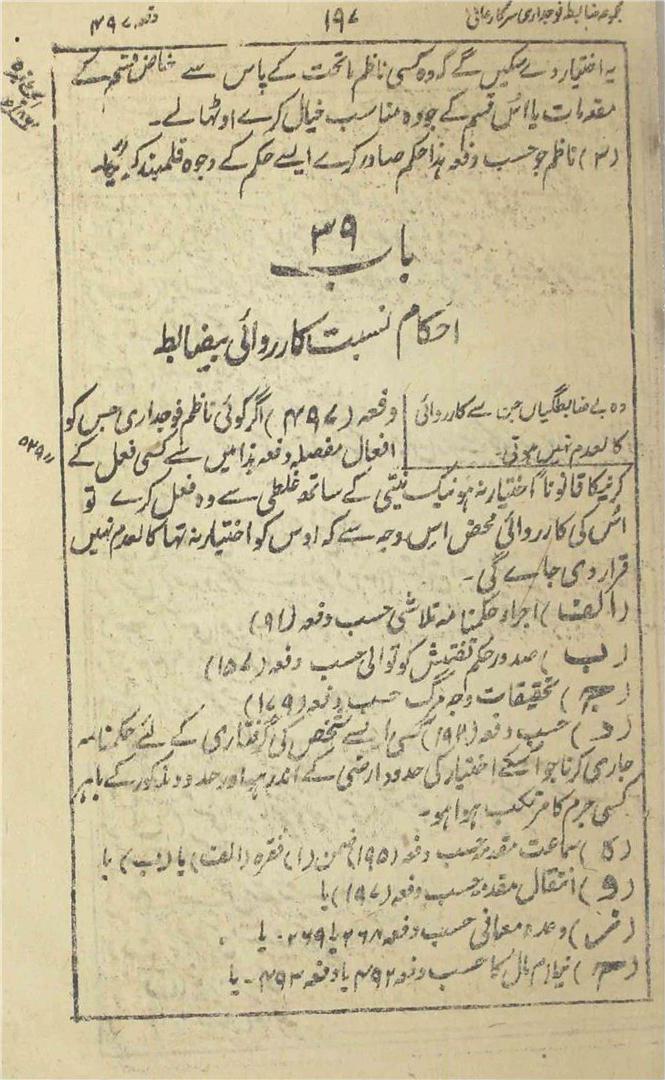 مجموعہ ضابطہ فوجداری سرکار عالی
۱۹۷
دفعہ ۴۹۷
یہ اختیار دے سکیں گے کہ وہ کسی ناظم ماتحت کے پاس سے خاص قسم کے
مقدمات یا اس قسم کے جو وہ مناسب خیال کرے اوٹھا لے۔
(۳) ناظم جو حسب دفعہ ہذا حکم صادر کرے ایسے حکم کے وجوہ قلمبند کریگا۔
باب ۳۹
احکام نسبت کارروائی بیضابطہ
وہ بے ضابطگیاں جن سے کارروائی
کالعدم نہیں ہوتی۔
دفعہ (۴۹۷) اگر کوئی ناظم فوجداری جس کو
افعال مفصلہ دفعہ ہذا میں سے کسی فعل کے
۵۲۹
کرنیکا قانوناً اختیار نہ ہو نیک نیتی کے ساتھ غلطی سے وہ فعل کرے تو
اس کی کارروائی محض اس وجہ سے کہ اوس کو اختیار نہ تھا کالعدم نہیں
قرار دی جاے گی۔
(الف) اجراء حکمنامہ تلاشی حسب دفعہ (۹۱)
(ب) صدور حکم تفتیش کوتوالی حسب دفعہ (۱۵۷)
(ج) تحقیقات وجہ مرگ حسب دفعہ (۱۷۹)
(د) حسب دفعہ (۱۹۱) کسی ایسے شخص کی گرفتاری کے لئے حکمنامہ
جاری کرنا جو اسکے اختیار کی حدود ارضی کے اندر ہو اور حدود مذکور کے باہر
کسی جرم کا مرتکب ہوا ہو۔
(ہ) سماعت مقدمہ حسب دفعہ (۱۹۵) ضمن (۱) فقرہ (الف) یا (ب) یا
(و) انتقال مقدمہ حسب دفعہ (۱۹۷) یا
(ز) وعدہ معافی حسب دفعہ ۲۶۸ یا ۲۶۹۔ یا
(ح) نیلام مال کا حسب دفعہ ۴۹۲ یا دفعہ ۴۹۳۔ یا